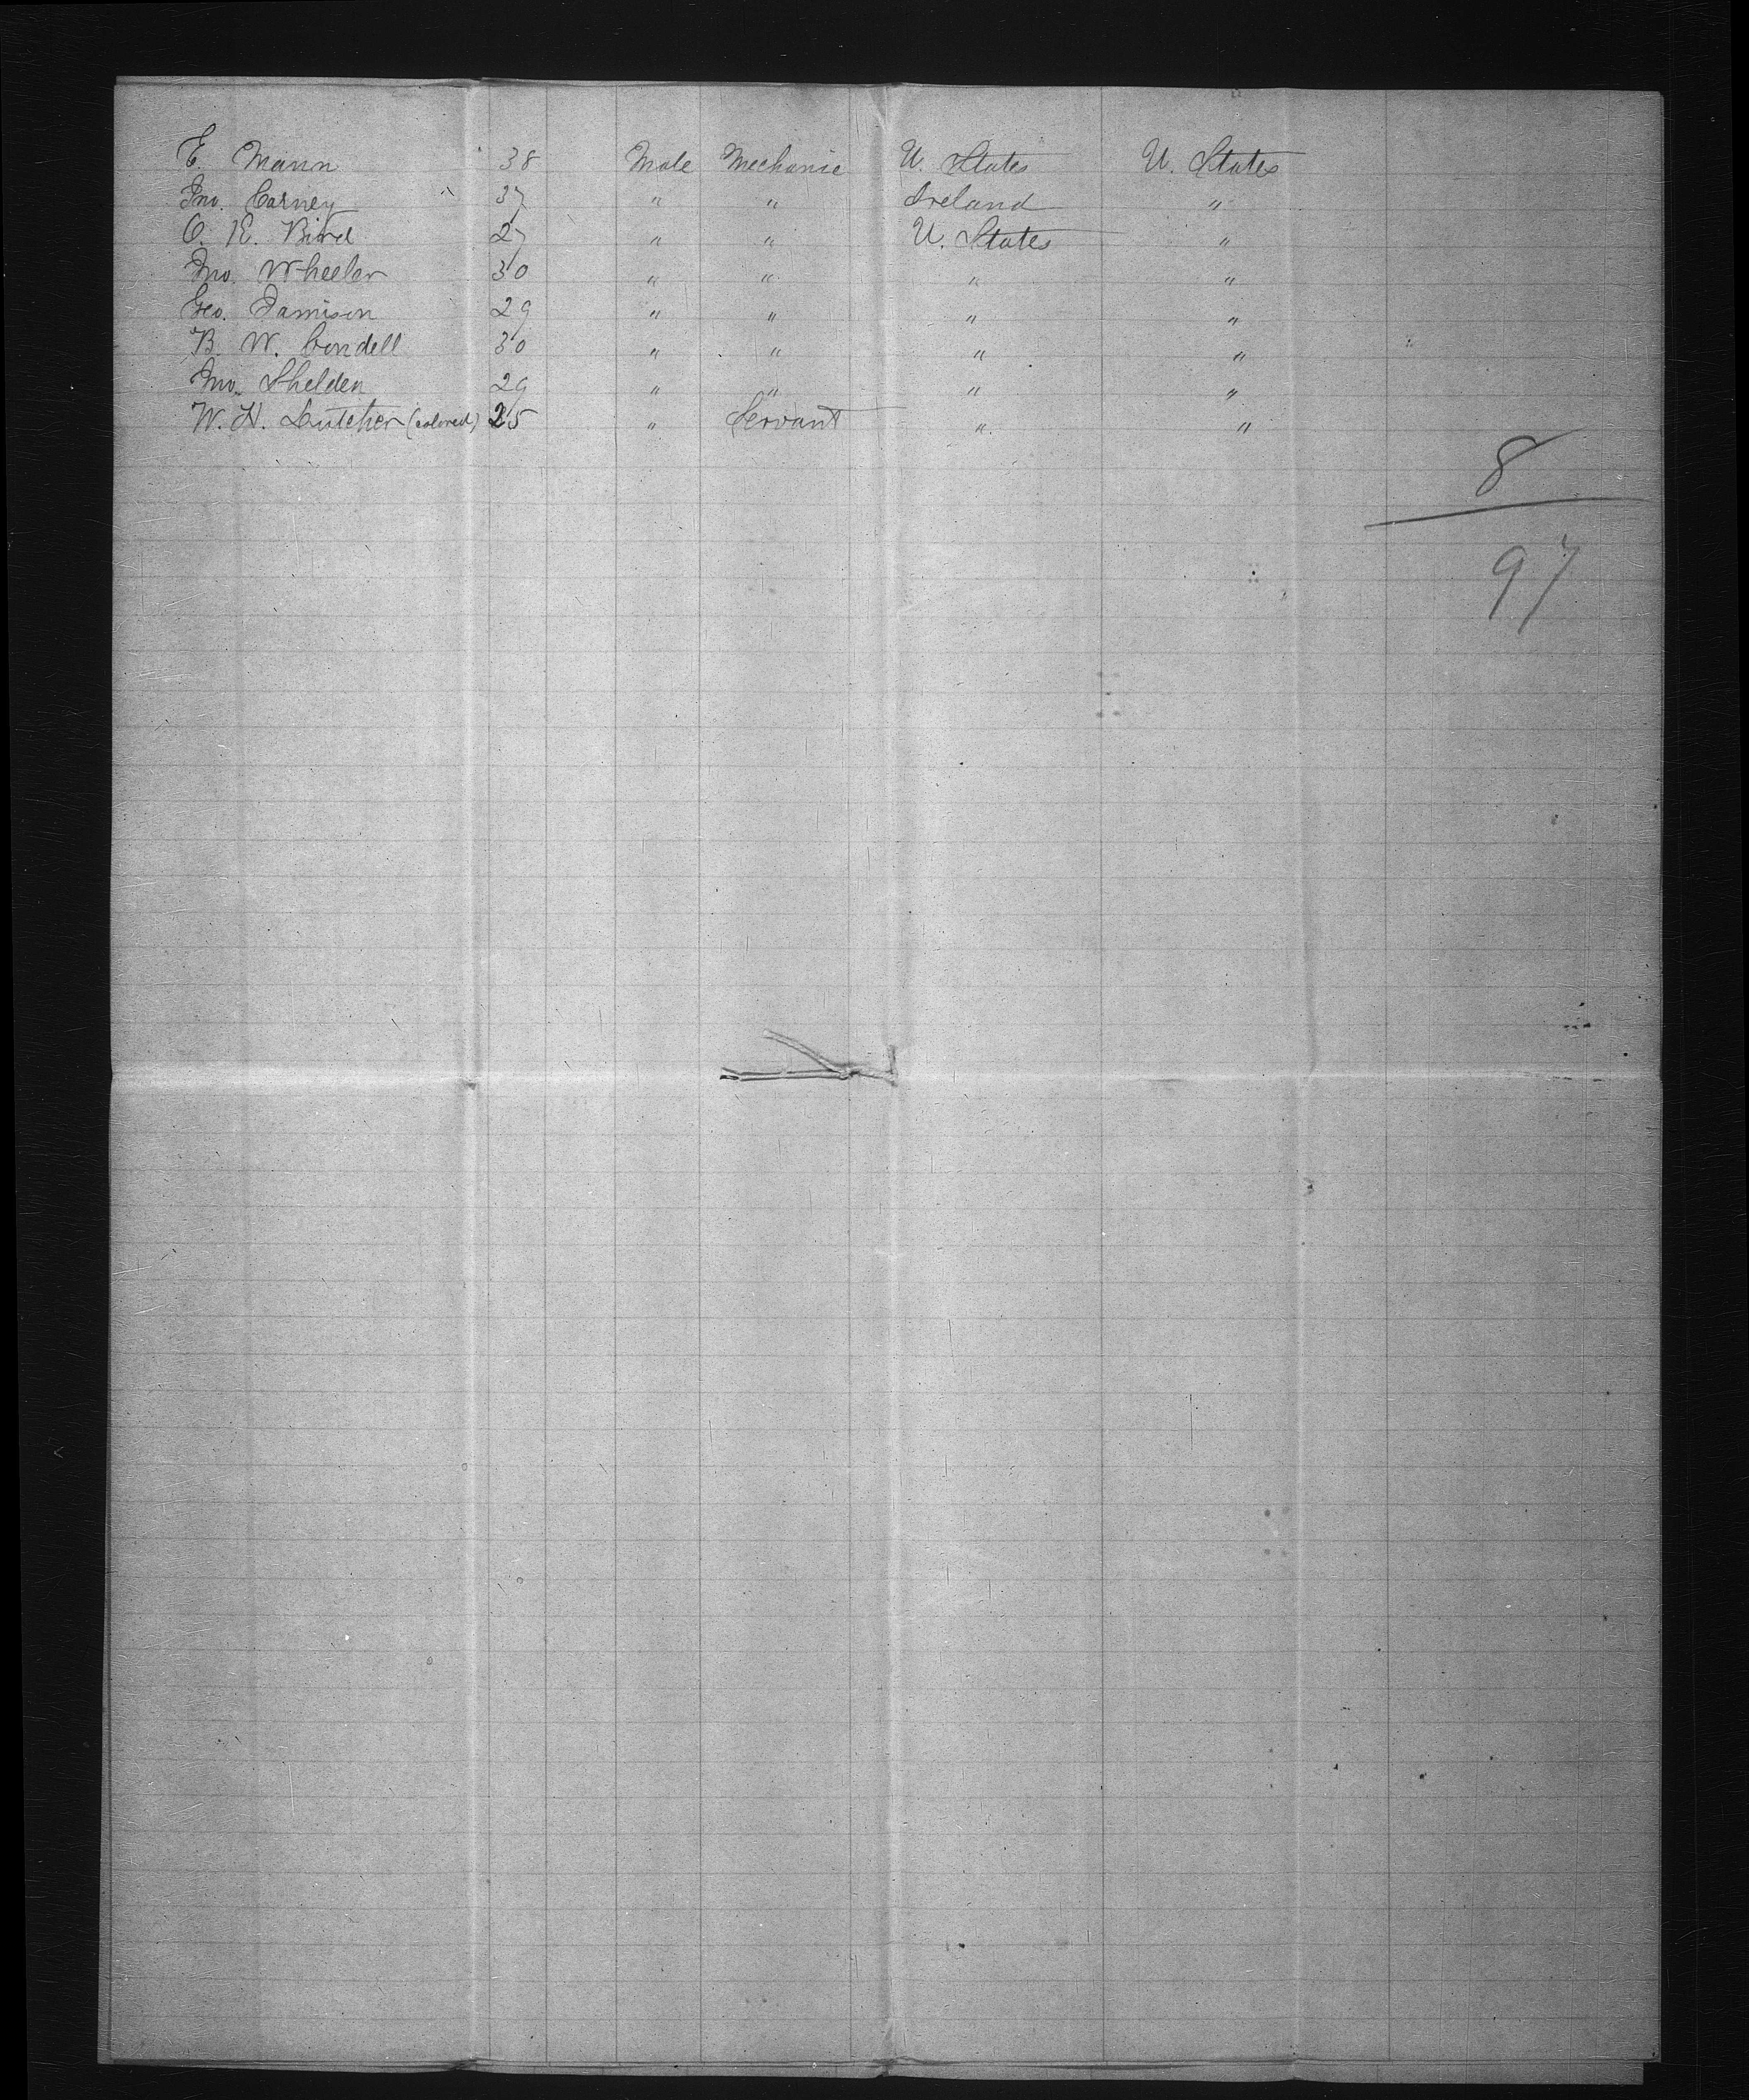 E. Mann 38 Male Mechanic U. States U. States
Jno. Carney 37 " " Ireland "
O. E. Bird 27 " " U. States "
Jno. Wheeler 30 " " " "
Geo. Jamison 29 " " " "
B. W. Condell 30 " " " "
Jno. Shelden 29 " " " "
W. H. Dutcher (colored) 25 " Servant " "
8
97